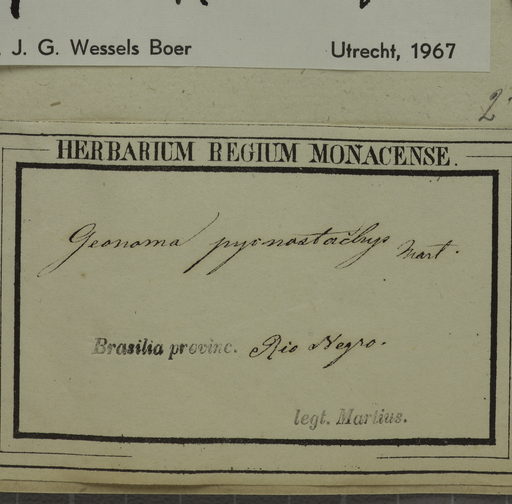 J. G. Wessels Boer Utrecht, 1967
2
HERBARIUM REGIUM MONACENSE.
Geonoma pycnostachys Mart.
Brasilia provinc. Rio Negro.
legt. Martius.